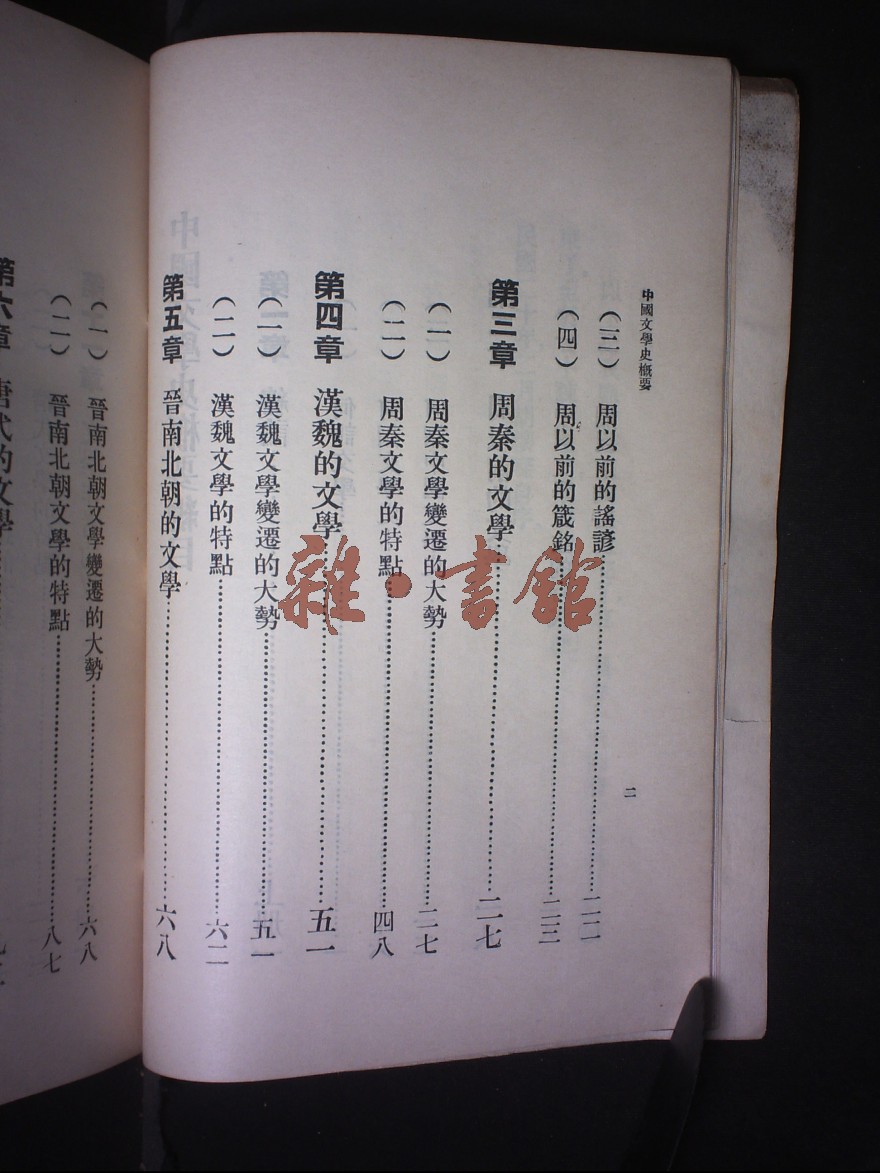 中國文學史概要
（三） 周以前的謠諺……………………二二
（四） 周以前的箴銘……………………二三
第三章 周秦的文學……………………二七
（一） 周秦文學變遷的大勢……………………二七
（二） 周秦文學的特點……………………四八
第四章 漢魏的文學……………………五一
（一） 漢魏文學變遷的大勢……………………五一
（二） 漢魏文學的特點……………………六二
第五章 晉南北朝的文學……………………六八
二
（一） 晉南北朝文學變遷的大勢……………………六八
（二） 晉南北朝文學的特點……………………八七
第六章 唐代的文學……………………
雜·書館